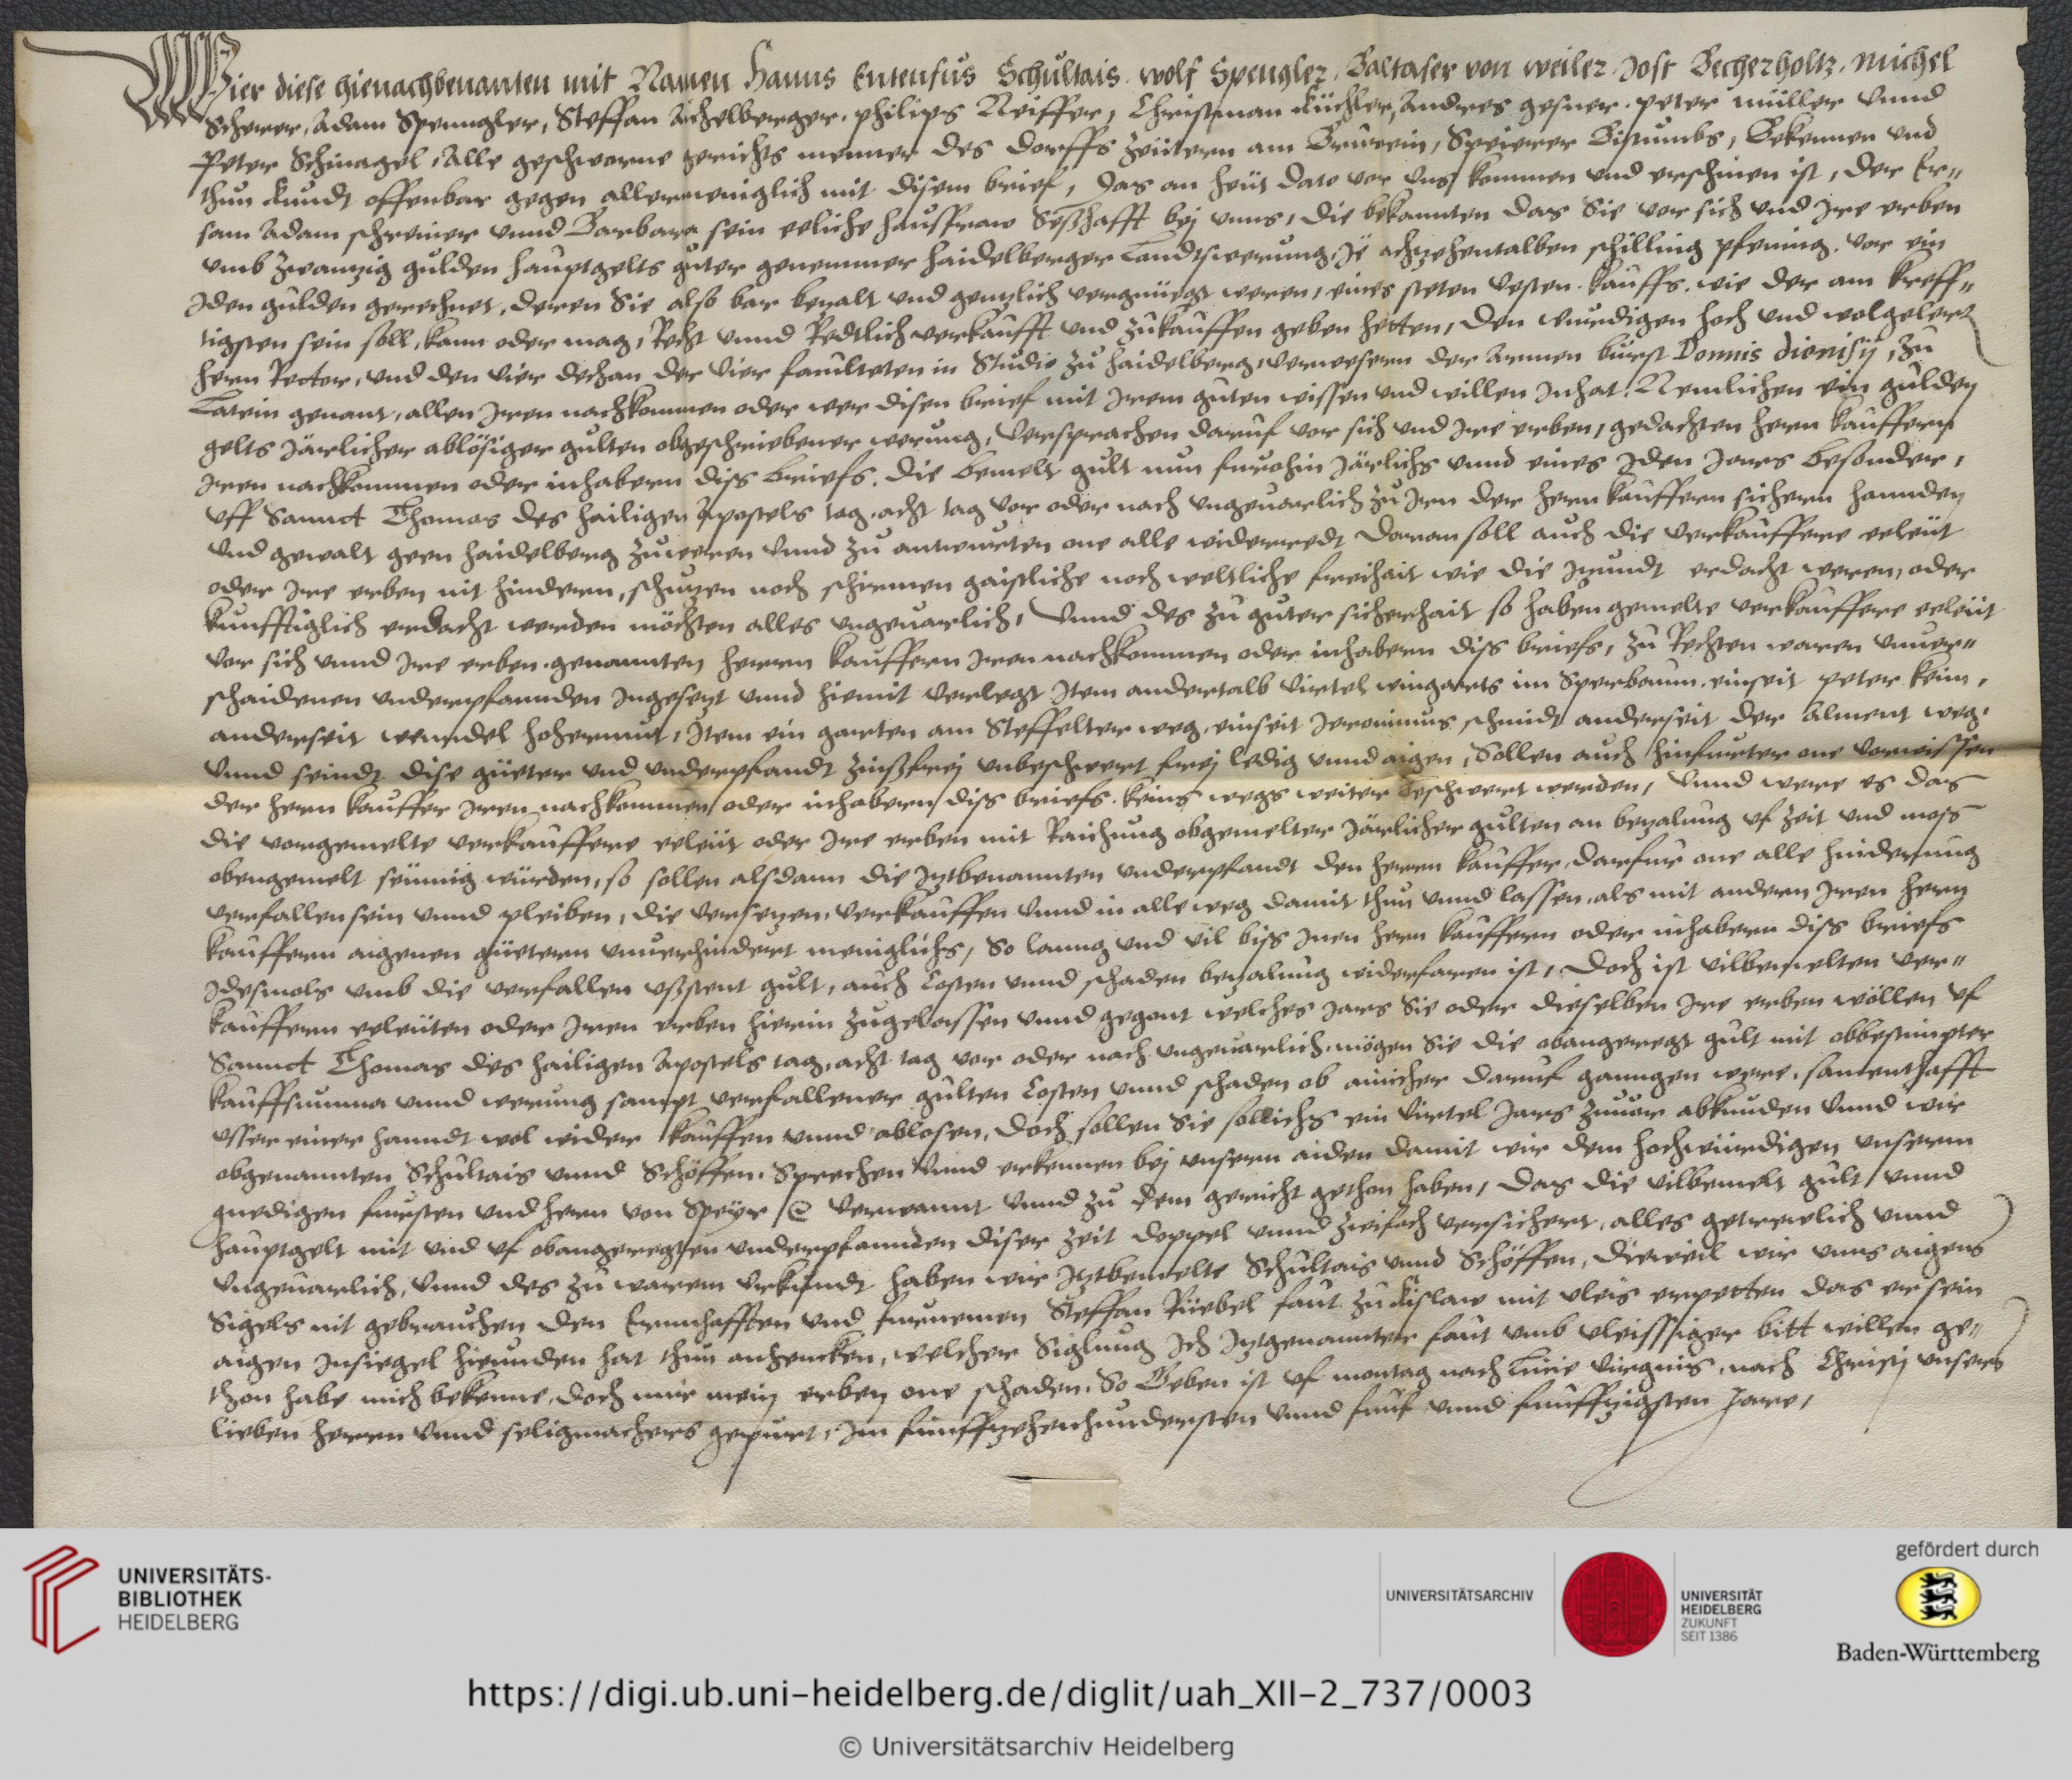 Wier diese hienachbenanten mit Namen Hanns Entenfus Schultais. wolf Spengler. Baltaser von weiler. Jost Becherholtz. Michel
Scherer, Adam Spenngler, Steffan Achelberger. philips Neiffer, Christman Küchler, Andres gesner. peter müller Unnd
Peter Schnagel, Alle geschworne gerichts menner des dorffs Zeütern am Brurein, Speierer Bistumbs, Bekennen und
thun kundt offenbar gegen allermeniglich mit disem brief, das an heüt dato vor uns kommen und erschinen ist, der Er„
sam Adam schreiner unnd Barbara sein eeliche hausfraw Seßhafft bej unns, die bekannten das Sie vor sich und Jre erben
umb zwanzig gulden hauptgelts guter genemmer haidelberger Landtswerung, Je achzehentalben schilling pfening. vor ein
Jden gulden gerechnet, deren Sie also bar bezalt und genzlich vergnüegt weren, eines steten vesten kauffs. wie der am kreff„
tigsten sein soll, kann oder mag, Recht unnd Redtlich verkaufft und zukauffen geben hetten, den wurdigen hoch und wolgelert
hern Rector, und den vier dechan der vier faculteten in Studio zu haidelberg, verwesern der armen bürst Domus dionisij, zu
Latein genant, allen Jren nachkommen oder wer disen brief mit Jrem guten wissen und willen Jnhat. Nemlichen ein gulden
gelts Järlicher ablösiger gulten obgeschriebener werung, versprachen daruf vor sich und Jre erben, gedachten hern kauffern
Jren nachkommen oder inhabern diss briefs. die bemelt gult nun furohin Järlichs unnd eines Jden Jares besonder,
uff Sannct Thomas des hailigen Apostels tag, acht tag vor oder nach ungeuarlich zu Jrn der hern kauffern sichern hannden
und gewalt geen haidelberg zuweren unnd zu antwurten one alle widerredt daran soll auch die verkauffere eeleüt
oder Jre erben nit hindern, schuzen noch schirmen gaistliche noch weltliche freihait wie die Jzundt erdacht weren, oder
kunfftiglich erdacht werden möchten alles ungeuarlich, Unnd des zu guter sicherhait so haben gemelte verkauffere eeleüt
vor sich unnd Jre erben. genannten herrn kauffern Jren nachkommen oder inhabern diss briefs, zu Rechten waren unuer„
schaidenen underpfannden Jngesezt unnd hiemit verlegt Jtem andertalb virtel wingarts im Sperbaum. einseit peter keim,
anderseit wenndel hohermut, Jtem ein garten am Steffelter weg, einseit Jeronimus schmidt anderseit der Alment weg.
Unnd seindt dise güeter und underpfandt zinßfrej unbeschwert frej ledig unnd aigen, Sollen auch hinfurter one vorwissen
der hern kauffer Jren nachkommen oder inhabern diss briefs. keins wegs weiter beschwert werden, Unnd were es das
die vorgemelte verkauffere eeleüt oder Jre erben mit Raichung obgemelter Järlicher gulten an bezalung uf zeit und mass
obengemelt seümig würden, so sollen alsdann die Jztbenannten underpfandt den herrn kauffer, darfur one alle hinderung
verfallen sein unnd pleiben, die versezen, verkauffen unnd in alle weg damit thun unnd lassen, als mit andern Jren hern
kauffern aigenen güetern unuerhindert meniglichs, So lanng und vil biss Jnen hern kauffern oder inhabern diss briefs
Jdesmals umb die verfallen ußstent gult, auch Costen unnd schaden bezalung widerfaren ist, Doch ist vilbemelten ver„
kauffern eeleüten oder Jren erben hierin zugelassen unnd gegont welches Jars Sie oder dieselben Jre erben wöllen uf
Sannct Thomas des hailigen Apostels tag, acht tag vor oder nach ungeuarlich mögen Sie die obangeregt gult mit obbestimpter
kauffsumma unnd werung sampt verfallener gulten Costen unnd schaden ob ainicher daruf ganngen were. samenthafft
usser einer handt wol wider kauffen unnd ablosen, doch sollen Sie sollichs ein virtel Jars zuuor abkünden Unnd wir
obgenannten Schultais unnd Schöffen. Sprechen unnd erkennen bej unsern aiden damit wir dem hochwürdigen unserm
gnedigen fursten und hern von Speyr &c verwannt unnd zu dem gericht gethan haben, das die vilbemelt gult, unnd
hauptgelt mit und uf obangeregten underpfannden diser zeit doppel unnd zwifach versichert, alles getrewlich unnd
ungeuarlich, Unnd des zu warem urkundt haben wir Jztbemelte Schultais unnd Schöffen, dieweil wir unns aigens
Sigels nit gebrauchen den Ernnhafften und furnemen Steffan Rüebel faut zu kislaw mit vleis erpetten das er sein
aigen Jnsiegel hieunden hat thun anhencken, welcher Siglung Jch Jztgenannter faut umb vleissiger bitt willen ge„
than habe mich bekenne, doch mir mein erben one schaden. So Geben ist uf montag nach Lucie virginis, nach Christj unsers
lieben herren unnd seligmachers gepurt, Jm funffzehenhundersten unnd funf unnd funffzigsten Jare,
UNIVERSITÄTS-
BIBLIOTHEK
HEIDELBERG
UNIVERSITÄTSARCHIV
UNIVERSITÄT
HEIDELBERG
ZUKUNFT
SEIT 1386
gefördert durch
Baden-Württemberg
https://digi.ub.uni-heidelberg.de/diglit/uah_XII-2_737/0003
© Universitätsarchiv Heidelberg